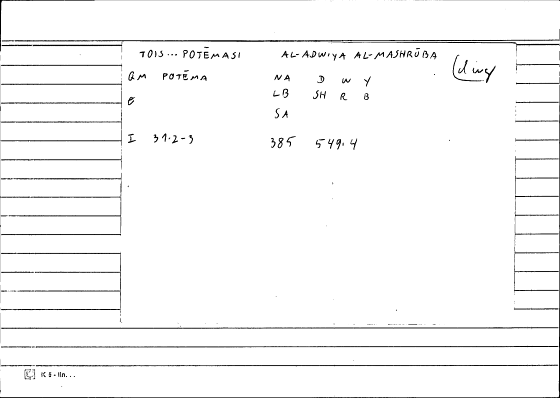 TOIS... POTĒMASI AL-ADWIYA AL-MASHRŪBA
GM POTĒMA NA D W Y
LB SH R B
SA
I 31.2-3 385 549.4